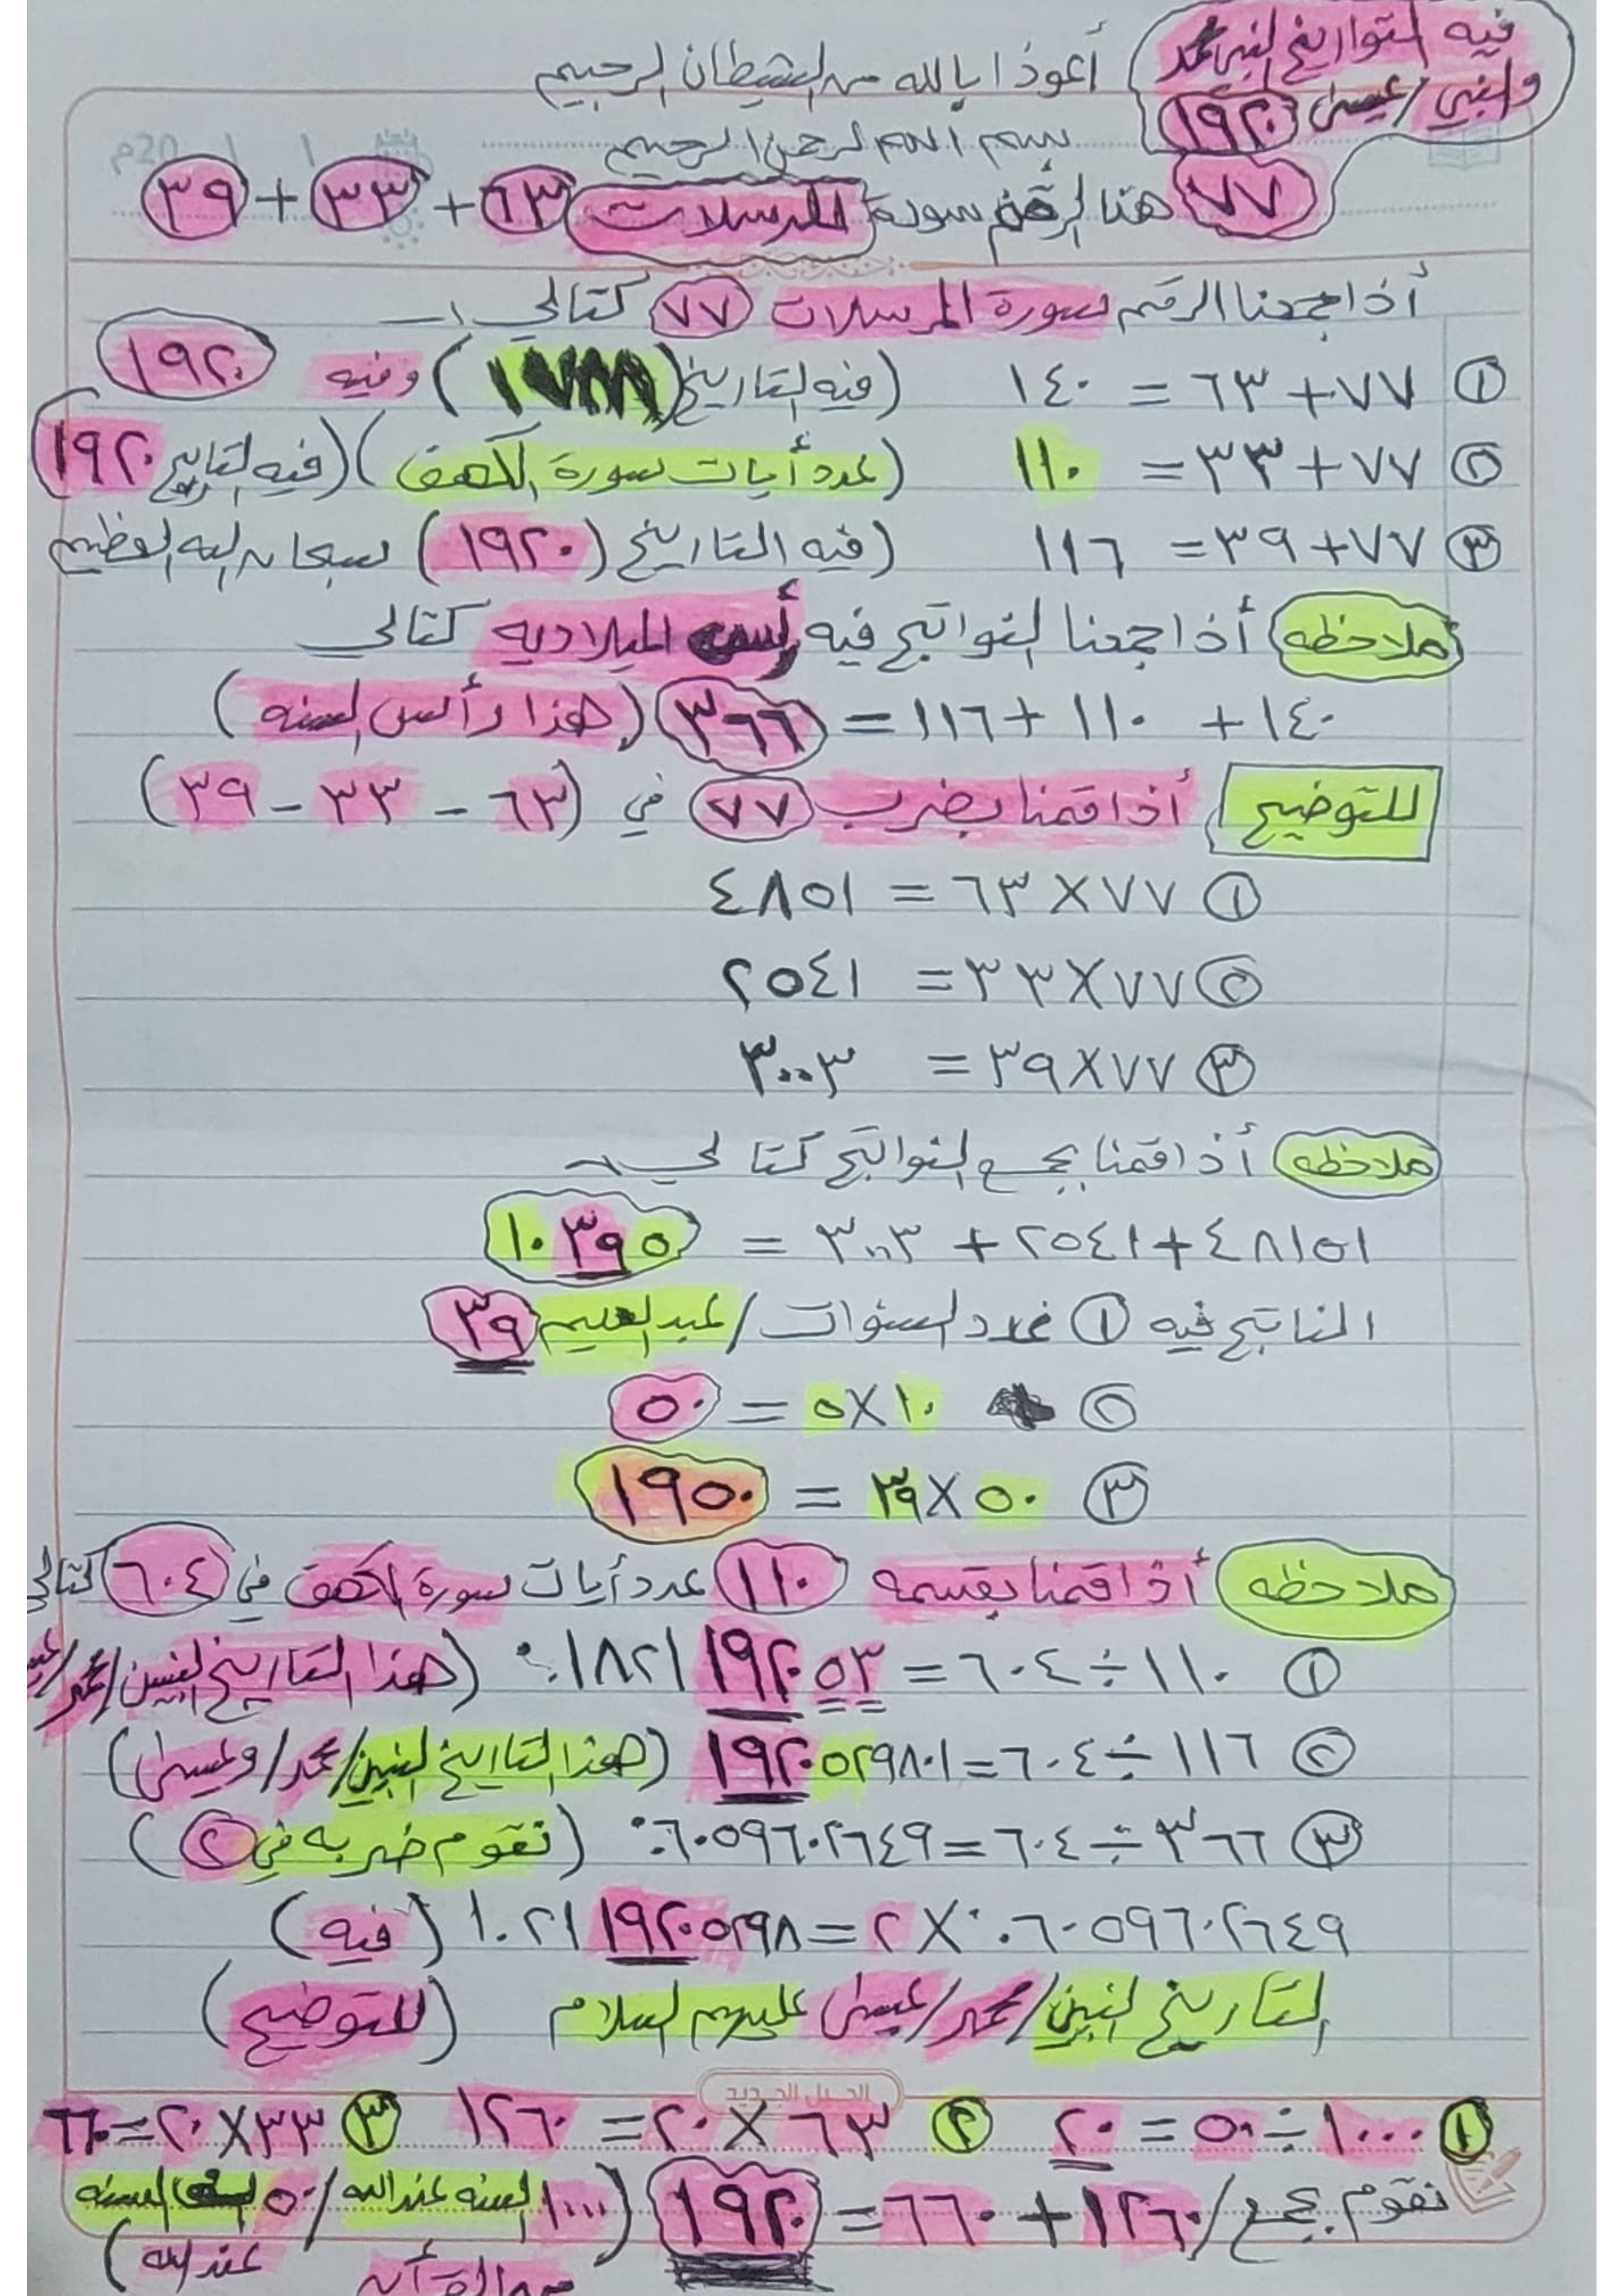 فيه التواريخ النبي محمد
والنبي / عيسى ١٩٢٠
أعوذا بالله من الشيطان الرجيم
بسم الله الرحمن الرحيم
٧٧ هنا الرقم سورة المرسلات ٦٣ + ٣٣ + ٣٩
أذا جمعنا الرقم سورة المرسلات ٧٧ كتالي :-
١ ٧٧ + ٦٣ = ١٤٠ (فيه التاريخ ( ) وفيه ١٩٢٠
٢ ٧٧ + ٣٣ = ١١٠ (عدد أيات سورة الكهف) (فيه التاريخ ١٩٢٠
٣ ٧٧ + ٣٩ = ١١٦ (فيه التاريخ (١٩٢٠) سبحان الله العظيم
ملاحظه أذا جمعنا النواتج فيه الميلاديه كتالي
١٤٠ + ١١٠ + ١١٦ = ٣٦٦ (هذا رأس السنه)
للتوضيح أذا قمنا بضرب ٧٧ في (٦٣ - ٣٣ - ٣٩)
١ ٧٧ × ٦٣ = ٤٨٥١
٢ ٧٧ × ٣٣ = ٢٥٤١
٣ ٧٧ × ٣٩ = ٣٠٠٣
ملاحظه أذا قمنا بجمع النواتج كتالي
٤٨١٥١ + ٢٥٤١ + ٣٠٠٣ = ١٠٣٩٥
الناتج فيه ١ عدد السنوات / عبد العليم ٣٩
٢ ١٠ × ٥ = ٥٠
٣ ٥٠ × ٣٩ = ١٩٥٠
ملاحظه أذا قمنا بقسمه ١١٠ عدد أيات سورة الكهف في ٦٠٤ كتالي
١ ١١٠ ÷ ٦٠٤ = ٠.١٨٢١١٩٢٠٥٣ (هذا التاريخ النبين / محمد /
٢ ١١٦ ÷ ٦٠٤ = ١٩٢٠٥٢٩٨٠١ (هذا التاريخ النبين / محمد / وعيسى)
٣ ٣٦٦ ÷ ٦٠٤ = ٠.٦٠٥٩٦٠٢٦٤٩ (نقوم ضربه في ٢)
٠.٦٠٥٩٦٠٢٦٤٩ × ٢ = ١.٢١١٩٢٠٥٢٩٨ (فيه)
التاريخ النبين / محمد / عيسى عليهم السلام (للتوضيح)
الجيل الجديد
١ ١٠٠٠ ÷ ٥٠ = ٢٠ ٢ ٦٣ × ٢٠ = ١٢٦٠ ٣ ٣٣ × ٢٠ = ٦٦٠
نقوم بجمع / ١٢٦٠ + ٦٦٠ = ١٩٢٠ (١٠٠٠ السنه عند الله / ٥٠ السنه
عند الله) القرآن